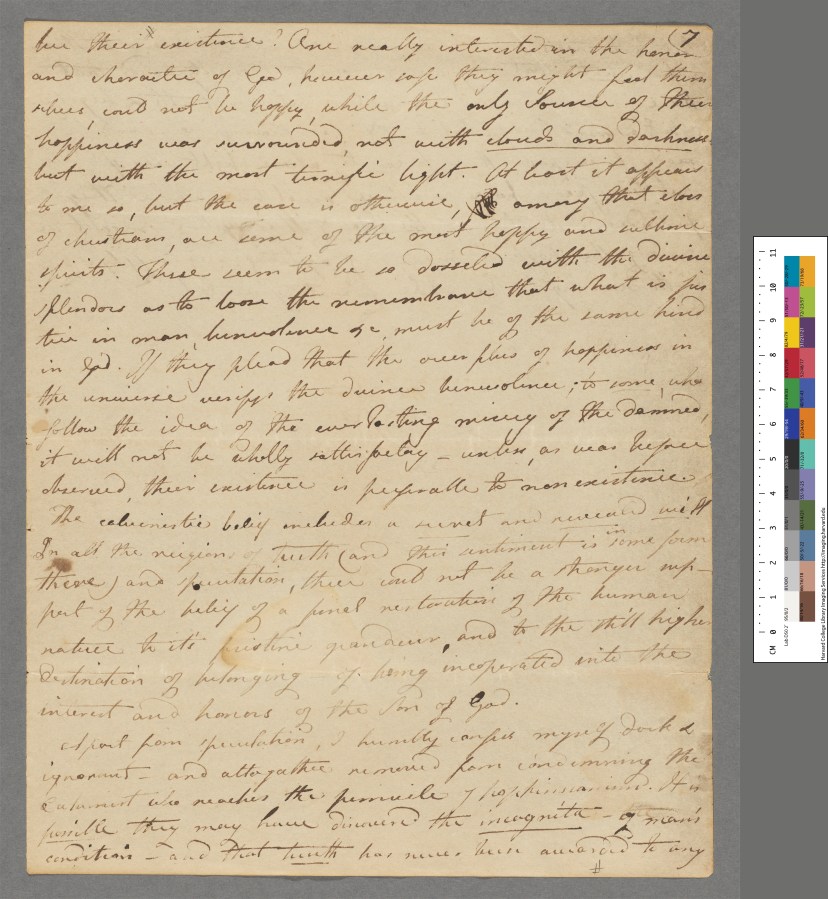 7
her their existence? One really interested in the honor
and character of God, however safe they might feel them
selves, could not be happy, while the only Source of their
happiness was surrounded, not with clouds and darkness
but with the most terrific light. At least it appears
to me so, but the case is otherwise, among that class
of christians, are some of the most happy and sublime
spirits. These seem to be so dasseled with the divine
splendors as to loose the remembrance that what is jus
tice in man, benevolence &c, must be of the same kind
in God. If they plead that the overplus of happiness in
the universe verifys the divine benevolence; to some, who
follow the idea of the everlasting misery of the damned,
it will not be wholly sattisfactory – unless, as was before
observed, their existence is preferable to non existence.
The calvinistic belief includes a secret and revealed will
In all the regions of truth (and this sentiment is in some form
there) and speculation, there could not be a stronger sup-
port of the belief of a final restoration of the human
nature to it's pristine grandeur, and to the still higher
destination of belonging of being incoperated into the
interest and honors of the Son of God.
Apart from speculation, I humbly confess myself dark &
ignorant – and altogather removed from condemning the
Calvinist who reaches the pinnicle of hopkinsianism. It is
possible they may have discovered the incognita – of man's
condition – and that truth has never been awarded to any
#
CM 0 1 2 3 4 5 6 7 8 9 10 11
Harvard College Library Imaging Services http://imaging.harvard.edu